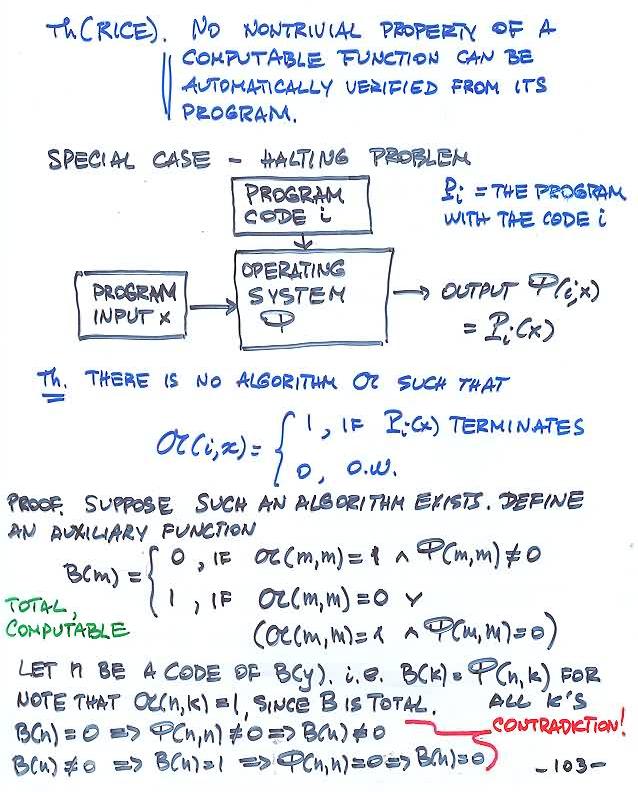 Th(RICE). NO NONTRIVIAL PROPERTY OF A
COMPUTABLE FUNCTION CAN BE
AUTOMATICALLY VERIFIED FROM ITS
PROGRAM.
SPECIAL CASE - HALTING PROBLEM
PROGRAM
CODE i
P_i = THE PROGRAM
WITH THE CODE i
PROGRAM
INPUT x
OPERATING
SYSTEM
Φ
OUTPUT Φ(i,x)
= P_i(x)
Th. THERE IS NO ALGORITHM 𝔄 SUCH THAT
𝔄(i,x) = { 1, IF P_i(x) TERMINATES
0, O.W.
PROOF. SUPPOSE SUCH AN ALGORITHM EXISTS. DEFINE
AN AUXILIARY FUNCTION
B(m) = { 0, IF 𝔄(m,m)=1 ∧ Φ(m,m)≠0
1, IF 𝔄(m,m)=0 ∨
(𝔄(m,m)=1 ∧ Φ(m,m)=0)
TOTAL,
COMPUTABLE
LET n BE A CODE OF B(y). i.e. B(k) = Φ(n,k) FOR
ALL k'S
NOTE THAT 𝔄(n,k)=1, SINCE B IS TOTAL.
B(n)=0 => Φ(n,n)≠0 => B(n)≠0
CONTRADICTION!
B(n)≠0 => B(n)=1 => Φ(n,n)=0 => B(n)=0
-103-